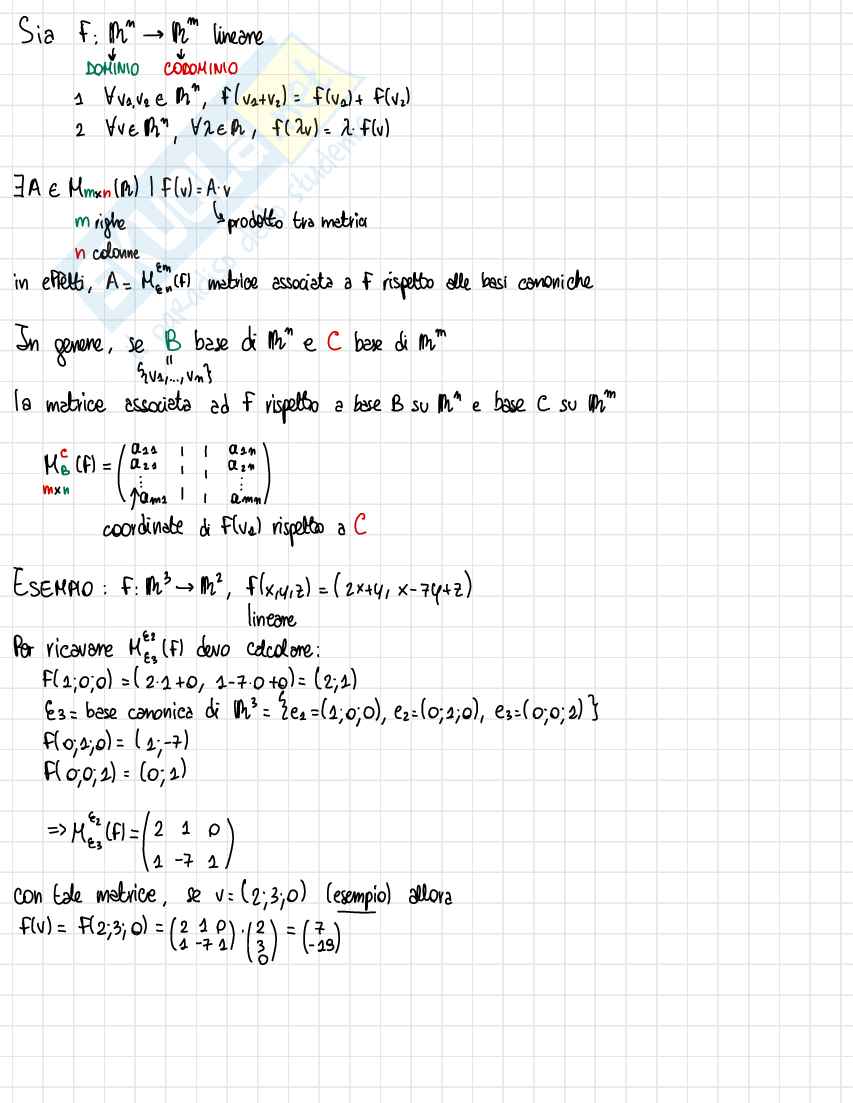 Sia f: ℝⁿ → ℝᵐ lineare
↓ ↓
DOMINIO CODOMINIO
1 ∀v₁,v₂ ∈ ℝⁿ, f(v₁+v₂) = f(v₁) + f(v₂)
2 ∀v ∈ ℝⁿ, ∀λ ∈ ℝ, f(λv) = λ · f(v)
∃A ∈ M_{m×n}(ℝ) | f(v) = A·v
m righe ↳ prodotto tra matrici
n colonne
in effetti, A = M_{εn}^{εm}(f) matrice associata a f rispetto alle basi canoniche
In genere, se B base di ℝⁿ e C base di ℝᵐ
"
{v₁,...,vₙ}
la matrice associata ad f rispetto a base B su ℝⁿ e base C su ℝᵐ
M_B^C (f) = ( a₁₁ | | a₁ₙ
a₂₁ | | a₂ₙ
... ...
m×n ↑aₘ₁ | | aₘₙ )
coordinate di f(v₁) rispetto a C
ESEMPIO: f: ℝ³ → ℝ², f(x,y,z) = (2x+y, x-7y+z)
lineare
Per ricavare M_{ε3}^{ε2}(f) devo calcolare:
f(1;0;0) = (2·1+0, 1-7·0+0) = (2;1)
ε3 = base canonica di ℝ³ = {e₁=(1;0;0), e₂=(0;1;0), e₃=(0;0;1)}
f(0;1;0) = (1;-7)
f(0;0;1) = (0;1)
=> M_{ε3}^{ε2}(f) = ( 2 1 0
1 -7 1 )
con tale matrice, se v = (2;3;0) (esempio) allora
f(v) = f(2;3;0) = (2 1 0 / 1 -7 1) · (2 / 3 / 0) = (7 / -19)